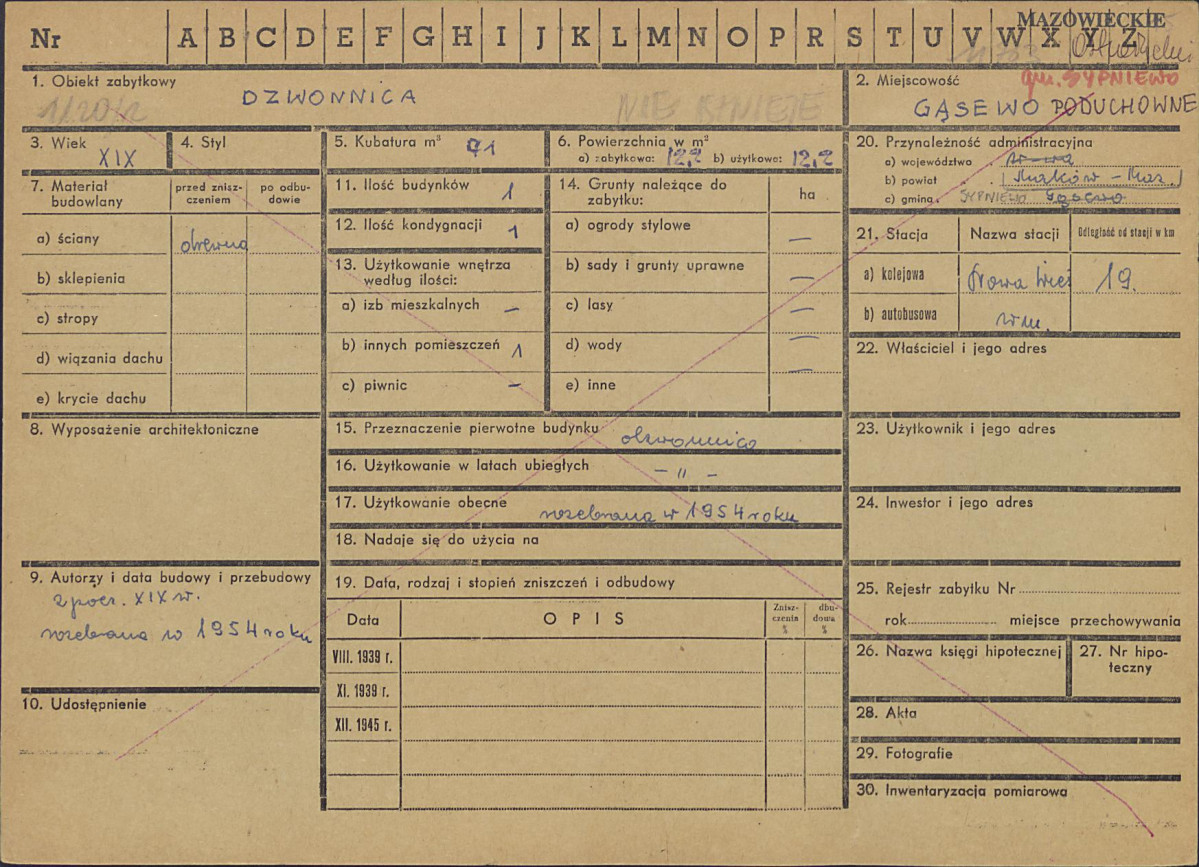 MAZOWIECKIE
Nr A B C D E F G H I J K L M N O P R S T U V W X Y Z
1. Obiekt zabytkowy
DZWONNICA
NIE ISTNIEJE
2. Miejscowość
gm. SYPNIEWO
GĄSEWO PODUCHOWNE
3. Wiek
XIX
4. Styl
5. Kubatura m³ 91
6. Powierzchnia w m²
a) zabytkowa: 12,2 b) użytkowa: 12,2
7. Materiał budowlany
przed zniszczeniem
po odbudowie
a) ściany drewno
b) sklepienia
c) stropy
d) wiązania dachu
e) krycie dachu
8. Wyposażenie architektoniczne
9. Autorzy i data budowy i przebudowy
z pocz. XIX w.
rozebrana w 1954 roku
10. Udostępnienie
11. Ilość budynków 1
12. Ilość kondygnacji 1
13. Użytkowanie wnętrza
według ilości:
a) izb mieszkalnych –
b) innych pomieszczeń 1
c) piwnic –
14. Grunty należące do
zabytku:
ha
a) ogrody stylowe –
b) sady i grunty uprawne –
c) lasy –
d) wody –
e) inne –
15. Przeznaczenie pierwotne budynku dzwonnica
16. Użytkowanie w latach ubiegłych – " –
17. Użytkowanie obecne rozebrana w 1954 roku
18. Nadaje się do użycia na
19. Data, rodzaj i stopień zniszczeń i odbudowy
Data
OPIS
Zniszczenia %
dbudowa %
VIII. 1939 r.
XI. 1939 r.
XII. 1945 r.
20. Przynależność administracyjna
a) województwo W-wa
b) powiat Maków - Maz.
c) gmina SYPNIEWO Gąsewo
21. Stacja
Nazwa stacji
Odległość od stacji w km
a) kolejowa Nowa Wieś 19.
b) autobusowa w m.
22. Właściciel i jego adres
23. Użytkownik i jego adres
24. Inwestor i jego adres
25. Rejestr zabytku Nr
rok miejsce przechowywania
26. Nazwa księgi hipotecznej
27. Nr hipoteczny
28. Akta
29. Fotografie
30. Inwentaryzacja pomiarowa